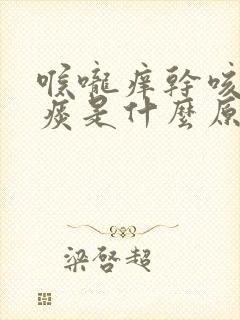 喉嚨痒幹咳
痰是什麼原
梁啓超